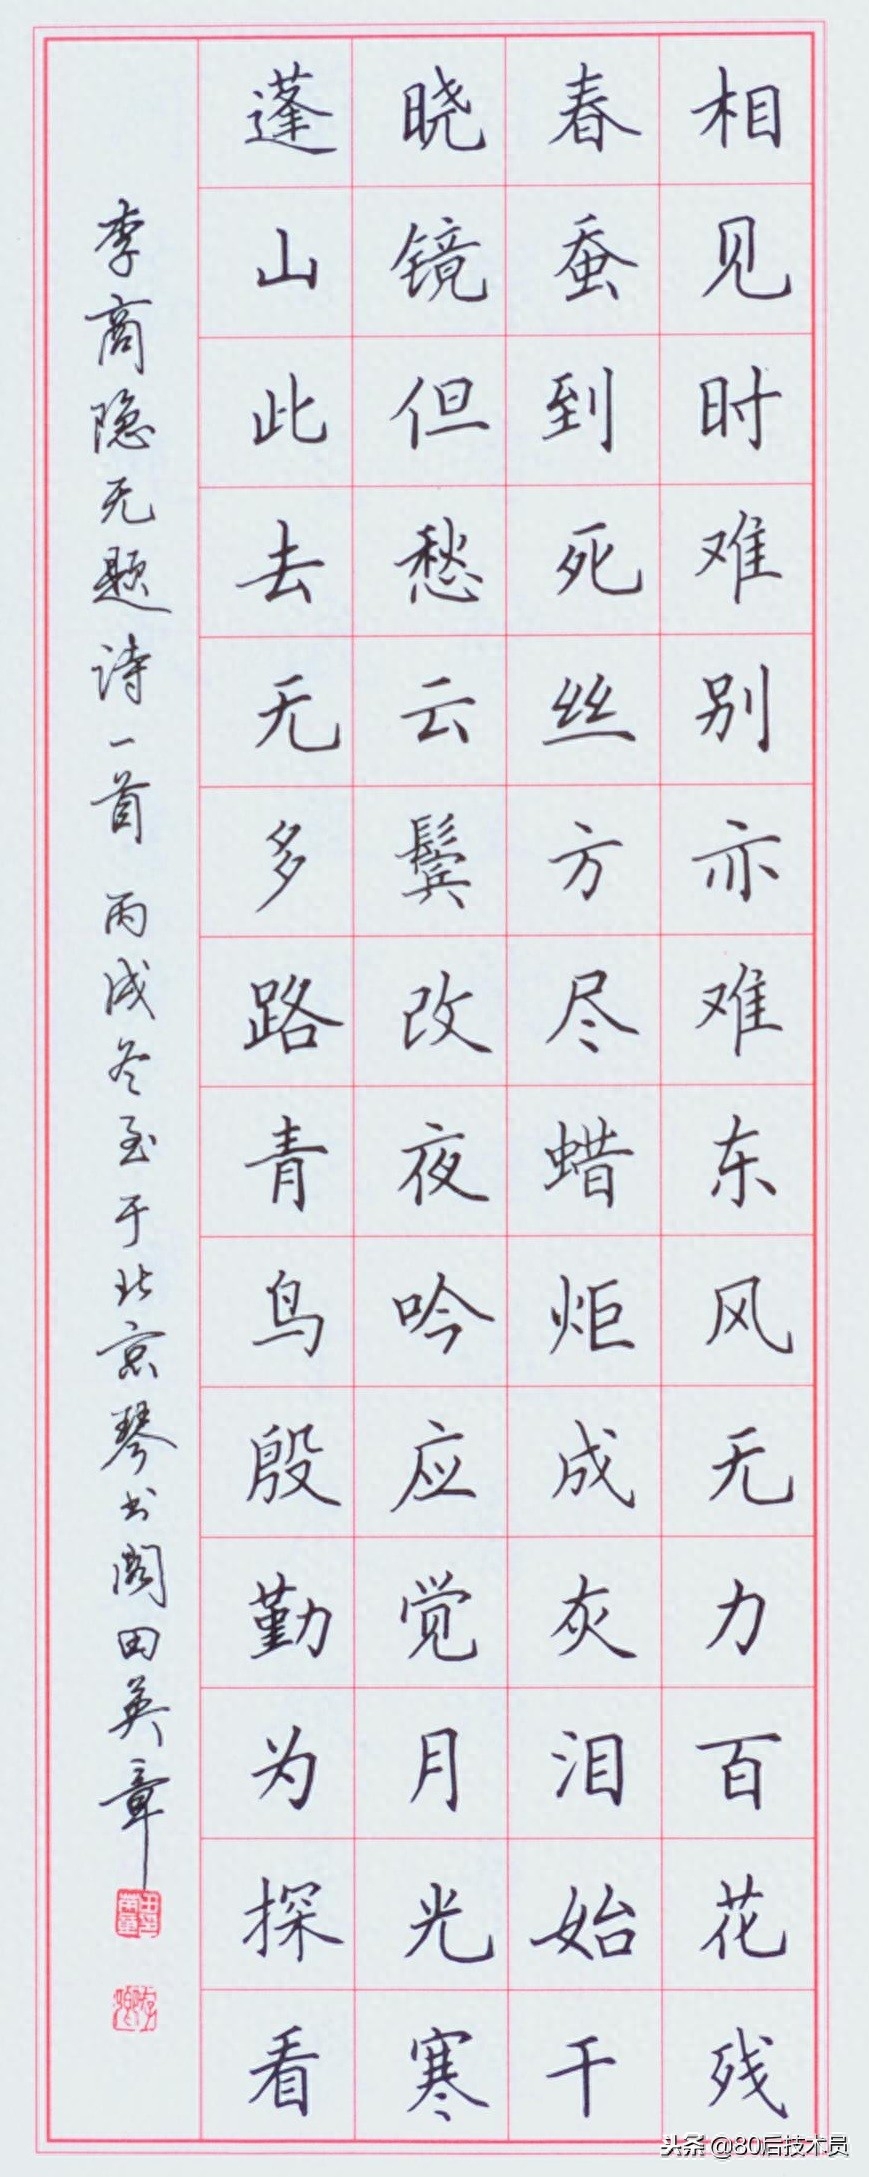 相见时难别亦难东风无力百花残
春蚕到死丝方尽蜡炬成灰泪始干
晓镜但愁云鬓改夜吟应觉月光寒
蓬山此去无多路青鸟殷勤为探看
李商隐无题诗一首 丙戌冬至于北京琴书阁田英章
头条 @80后技术员